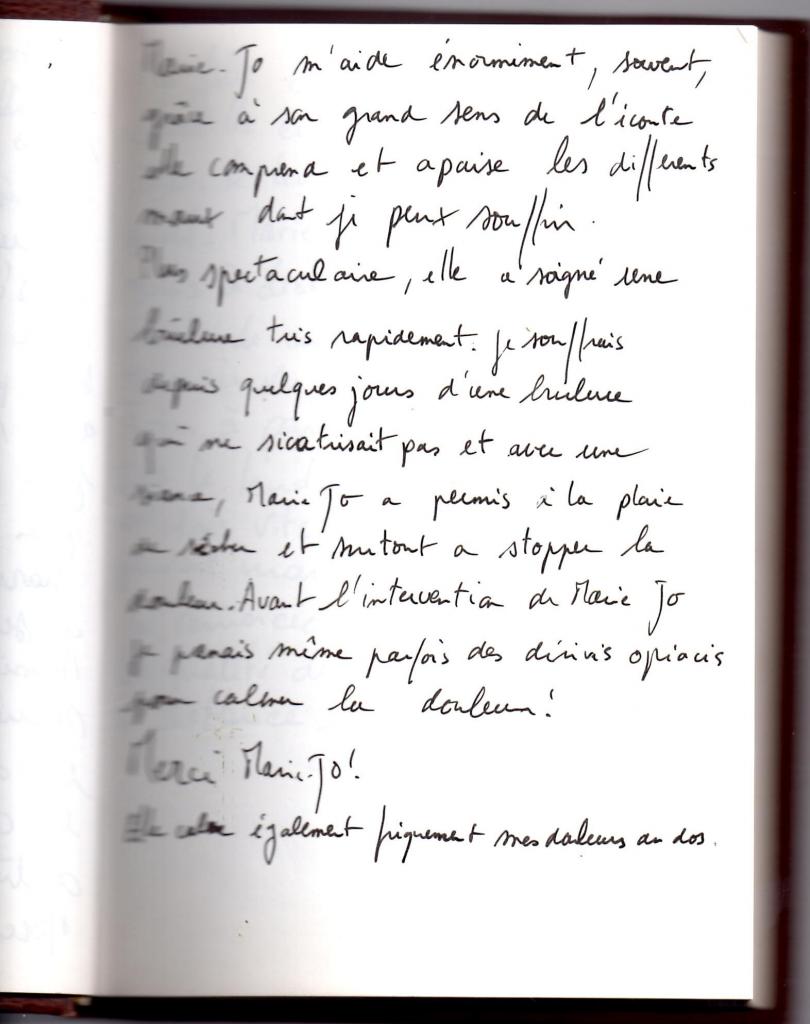 Marie-Jo m'aide énormément, souvent,
grâce à son grand sens de l'écoute
elle comprend et apaise les différents
maux dont je peux souffrir.
Plus spectaculaire, elle a soigné une
brûlure très rapidement. Je souffrais
depuis quelques jours d'une brulure
qui ne sicatrisait pas et avec une
séance, Marie Jo a permis à la plaie
de sécher et surtout a stopper la
douleur. Avant l'intervention de Marie Jo
je prenais même parfois des dérivés opiacés
pour calmer la douleur!
Merci Marie-Jo!
Elle calme également friquement mes douleurs au dos.